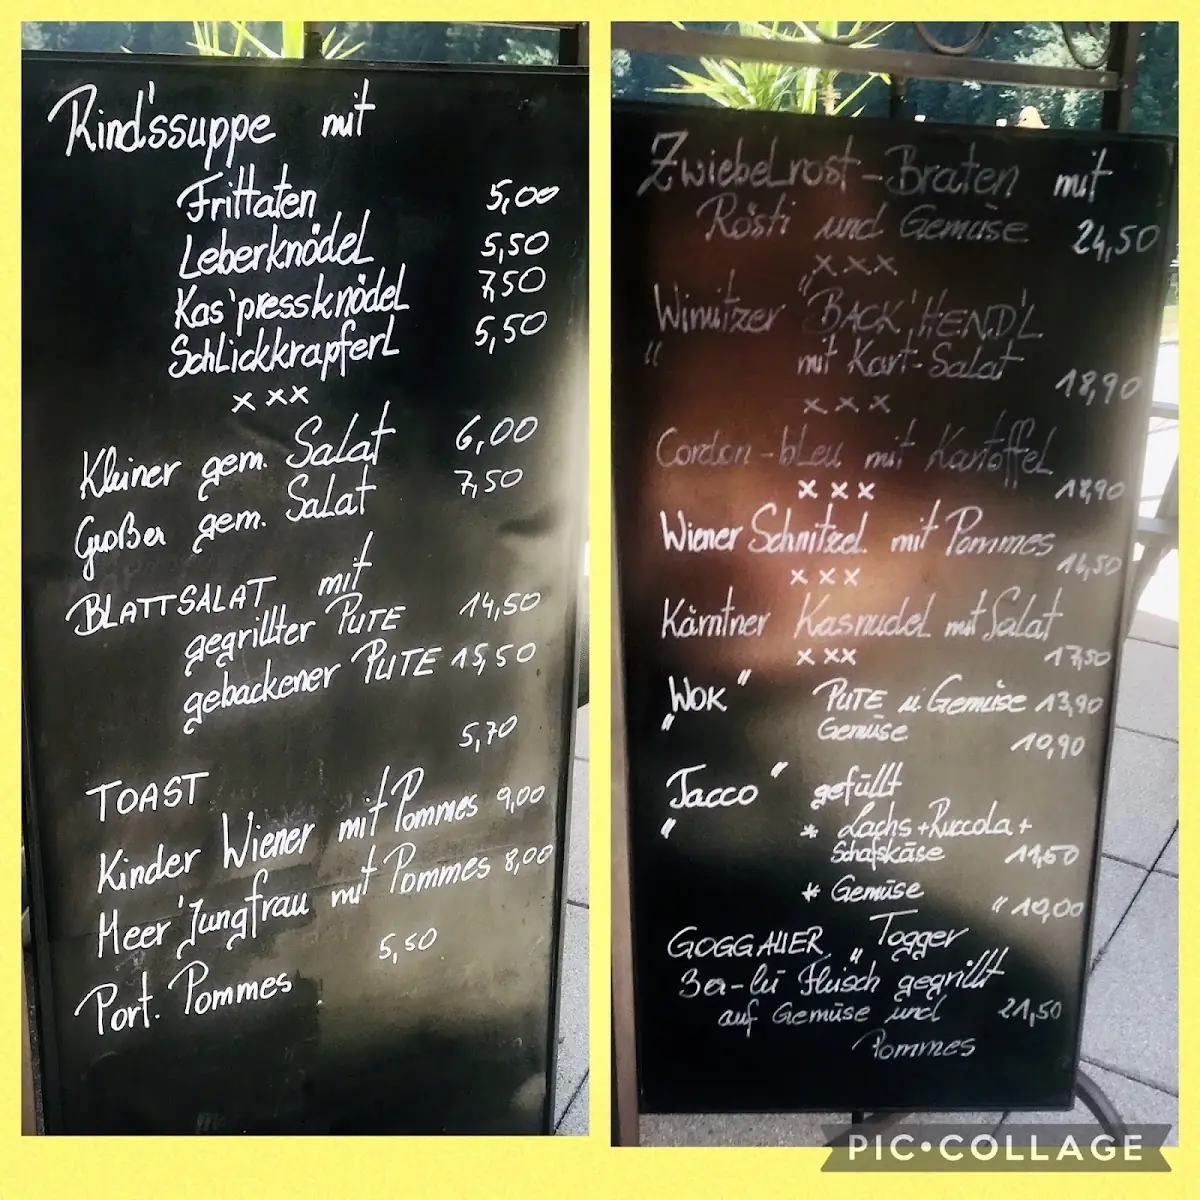 Rind'ssuppe mit
Frittaten 5,00
Leberknödel 5,50
Kas'pressknödel 7,50
Schlickkrapferl 5,50
x x x
Kleiner gem. Salat 6,00
Großer gem. Salat 7,50
BLATTSALAT mit
gegrillter PUTE 14,50
gebackener PUTE 15,50
5,70
TOAST
Kinder Wiener mit Pommes 9,00
Meer'Jungfrau mit Pommes 8,00
5,50
Port. Pommes
Zwiebelrost-Braten mit
Rösti und Gemüse 24,50
x x x
"BACK'HEND'L
mit Kart-Salat
18,90
x x x
Cordon-bleu mit Kartoffel
18,90
x x x
Wiener Schnitzel mit Pommes
x x x
Kärntner Kasnudel mit Salat
17,50
x x x
"WOK" PUTE u Gemüse 13,90
Gemüse 10,90
"Tacco" gefüllt
* Lachs+Ruccola+
Schafskäse
* Gemüse
10,00
GOGGAUER "Togger
3er-lei Fleisch gegrillt
auf Gemüse und 21,50
Pommes
PIC•COLLAGE